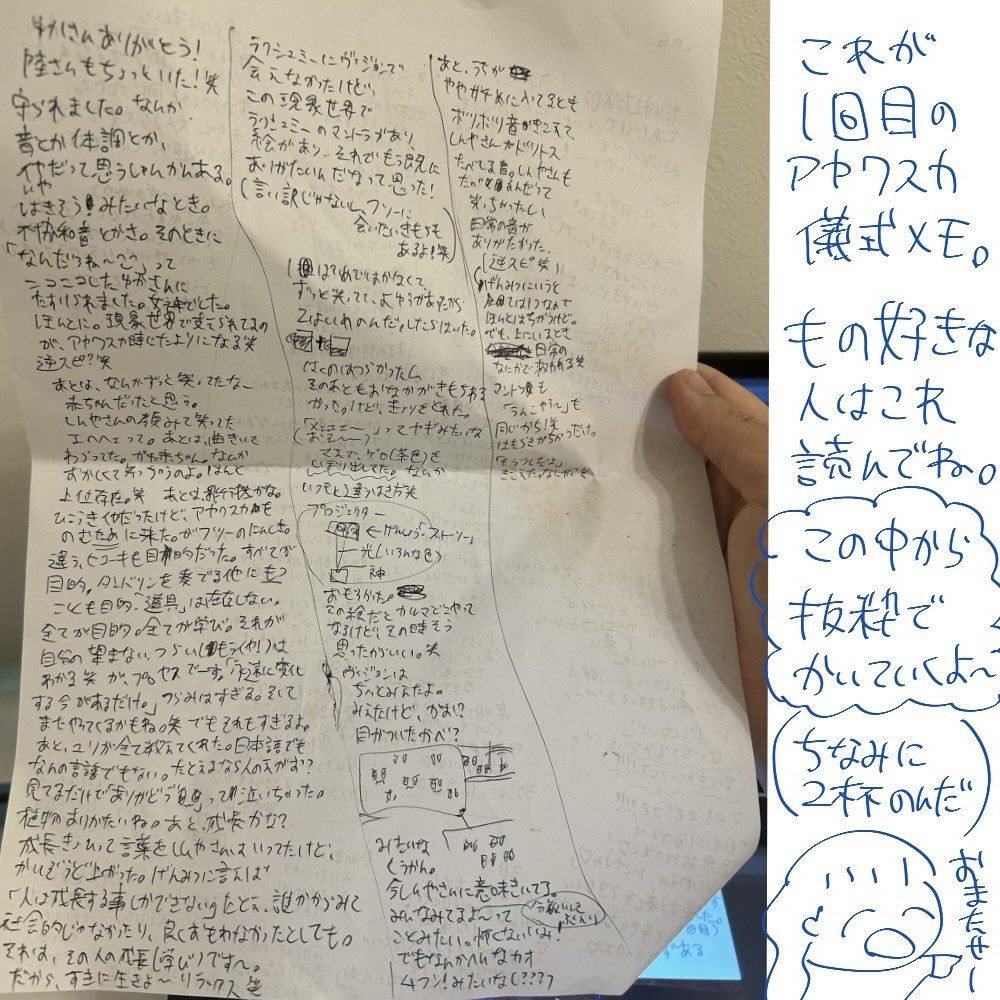 ゆかさんありがとう！
陸さんもちょっといた！笑
守られました。なんか
音とか体調とか、
イヤだって思うしゅんかんある。
はきそう！みたいなとき。
不協和音とかさ。そのときに
「なんだろね〜??」って
ニコニコしたゆかさんに
たすけられました。女神でした。
ほんとに。現象世界で支えられてるの
が、アヤワスカ時にたよりになる笑
逆スピ?笑
あとは、なんかずっと笑ってたな〜
赤ちゃんだったと思う。
しんやさんの顔みて笑った
エヘヘェって。あとは、曲きいて
わらってた。かわ赤ちゃん。なんか
おかしくて笑っちゃうのよ。ほんと
上位存在。笑 あとは、飛行機かな。
ひこうきイヤだったけど、アヤワスカを
のむために来た。がフツーのにんしき。
違う、ヒコーキも目的だった。すべてが
目的。タンバリンを奏でる他にもつ
ことも目的。「道具」は存在しない。
全てが目的。全てが学び。それが
自分の望まない、つらい()は
わかる笑 が、プロセスでーす。「永遠に変化
する今があるだけ。」つらみはすぎる。そして
またやってくるかもね。笑 でもそれもすぎるよ。
あと、ユリが全て教えてくれた。日本語でも
なんの言語でもない。たとえるなら人のえがお？
見てるだけでありがとうって泣いちゃった。
植物ありがたいね。あと、成長かな？
成長きんしって言葉をしんやさんはいってたけど、
かいぞうど上がった。げんみつに言えば
「人は成長する事しかできない」たとえ、誰かからみて
社会的じゃなかったり、良くおもわなかったとしても。
それは、その人の成長(学び)です〜。
だから、すきに生きよ〜 リラックス笑
ラクシュミーにヴィジョンで
会えなかったけど、
この現象世界で
ラクシュミーのマントラがあり、
絵があり、それでもう既に
ありがたいんだなって思った！
(言い訳じゃないし、フツーに
会いたいきもちも
あるよ！笑)
1回はじめではかなくて、
ずっと笑ってて、よゆうがあったから
2はいめのんだ。したらはいた。
はくのはつらかったし
そのあともおなかがきもちわる
かった。けど、きょりをとれた。
「メェェェ〜」ってヤギみたいな
マネで、ゲロ(茶色)を
しぼり出してた。なんか
いつもと違うはき方笑
プロジェクター
←げんしょう「ストーリー」
光(いろんな色)
神
おもろかた。
この絵だとカルマどこやって
なるけど、その時そう
思ったからいい。笑
ヴィジョンは
ちっとみえたよ。
みえたけど、かお!?
目がついたかべ？
みたいな
くうかん。
今しんやさんに意味きいてて。
みんなみてるよ〜って
ことみたい。怖くないよ！
でもなんかヘンなカオ
4フン！みたいな(????)
あと、うちが
ボリボリ音がきこえて
しんやさんがドリトス
たべてる音。しんやさんも
笑っちゃったし
日常の音が
ありがたかった。
[逆スピ笑]
げんみつにいうと
ほんとはちがうけど。
でも、上にいるとき
日常の
なにかで救われる笑
マントラも
「うんこやろー」も
同じかも！笑
これが
1回目の
アヤワスカ
儀式メモ。
もの好きな
人はこれ
読んでね。
この中から
抜粋で
かいていくよ〜
(ちなみに
2杯のんだ)
おまたせー